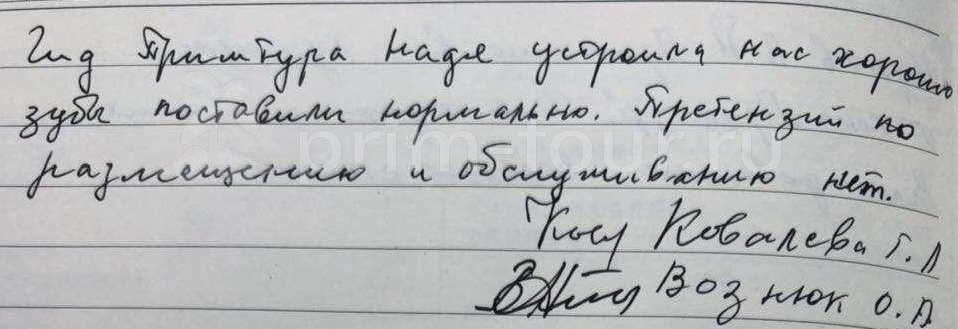 Гид Примтура Надя устроила нас хорошо
зубы поставили нормально. Претензий по
размещению и обслуживанию нет.
Ковалева Г.Л
Вознюк О.А.
prim-tour.ru